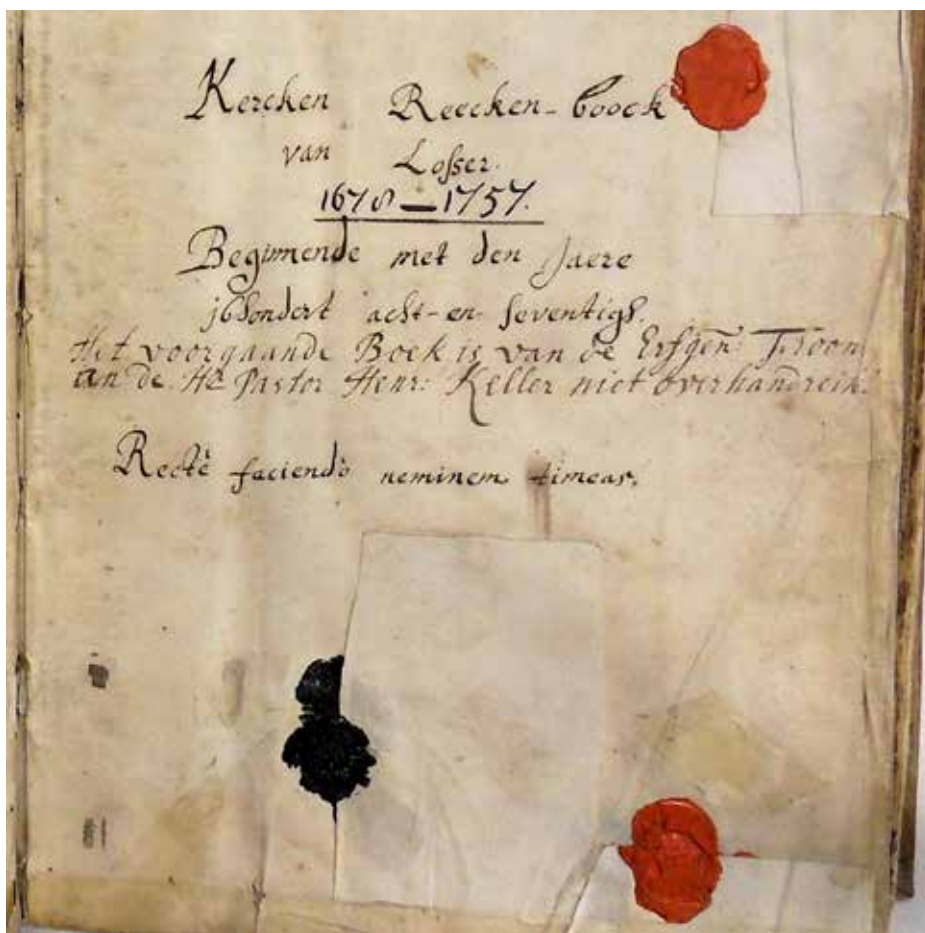 Kercken Reecken-boock
van Losser.
1678 — 1757.
Beginnende met den Jaere
16hondert acht-en-seventigh.
Het voorgaande Boek is van de Erfgen: Troon
an de Hr Pastor Henr: Keller niet overhandreik.
Rectè faciendo neminem timeas.